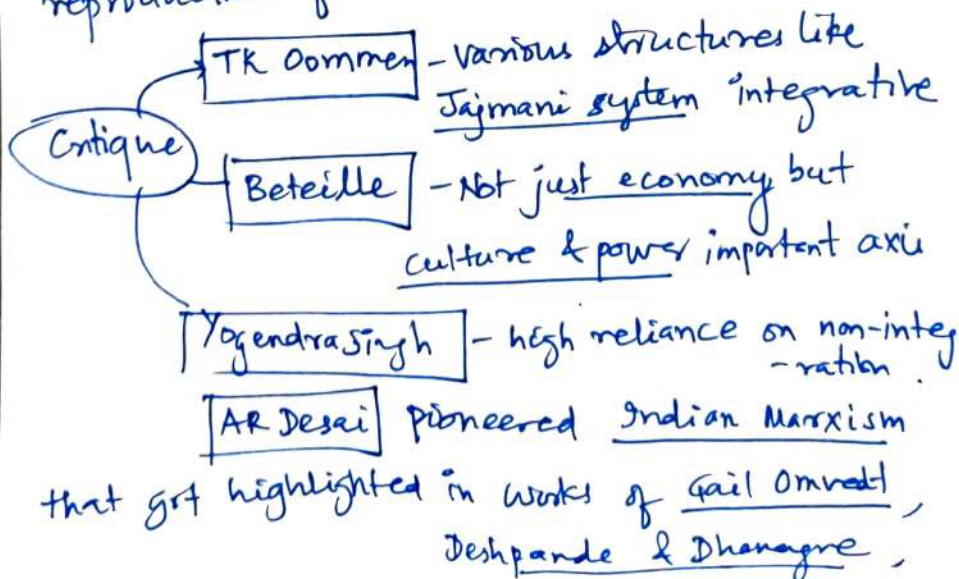 TK Oommen - various structures like
Jajmani system integrative
Critique
Beteille - Not just economy but
culture & power important axis
Yogendra Singh - high reliance on non-integ
-ration.
AR Desai pioneered Indian Marxism
that got highlighted in works of Gail Omvedt,
Deshpande & Dhanagre,